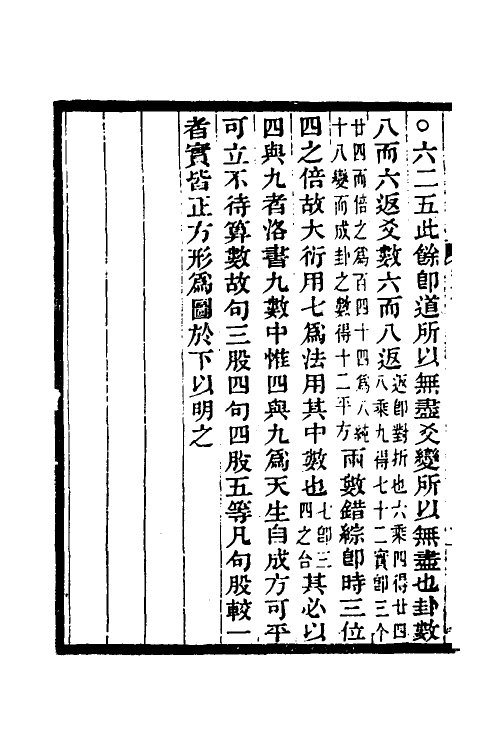 ○六二五此餘卽道所以無盡爻變所以無盡也卦數
八而六返爻數六而八返返卽對折也六乘四得廿四八乘九得七十二實卽三个
廿四而倍之爲百四十四爲八純十八變而成卦之數得十二平方兩數錯綜卽時三位
四之倍故大衍用七爲法用其中數也七卽三四之台其必以
四與九者洛書九數中惟四與九爲天生自成方可平
可立不待算數故句三股四句四股五等凡句股較一
者實皆正方形爲圖於下以明之